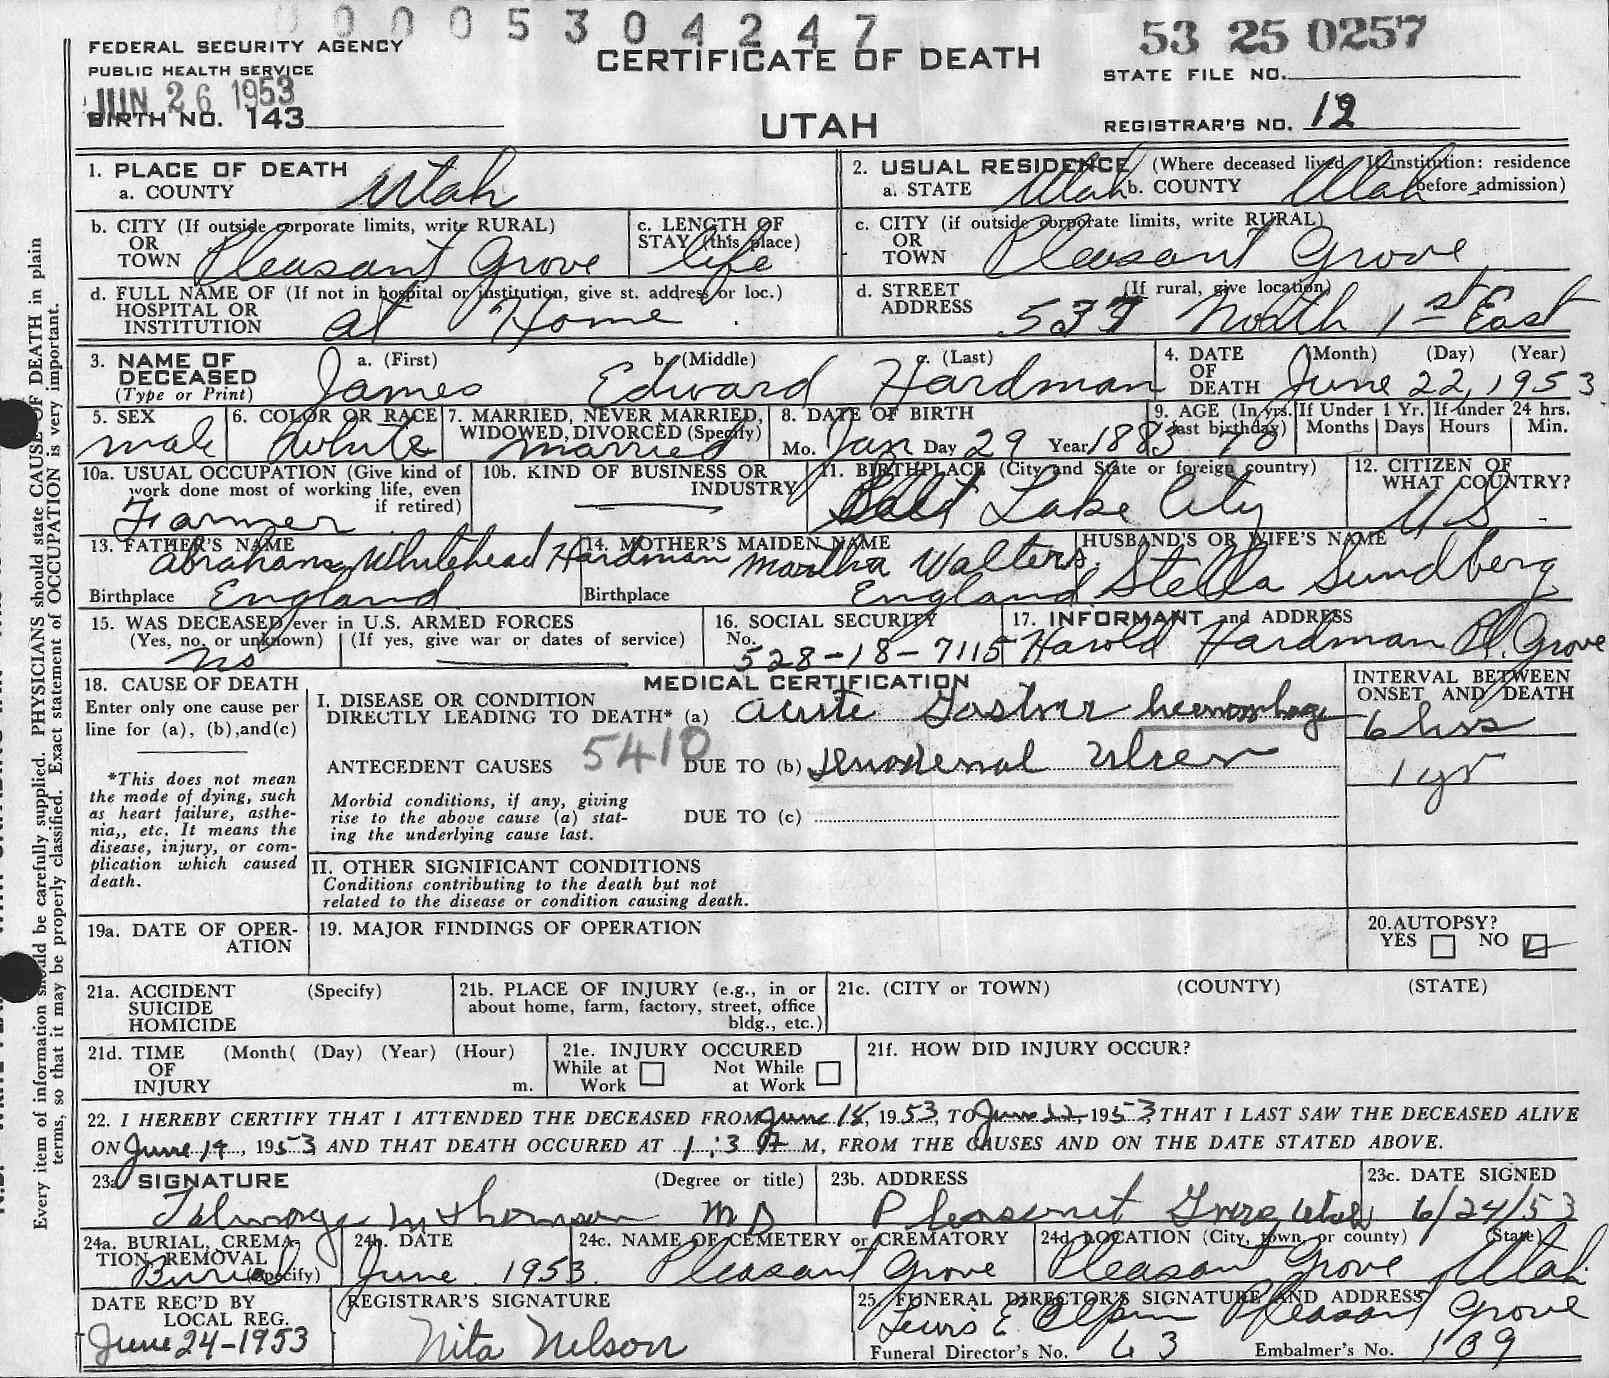 0 0 0 0 5 3 0 4 2 4 7
53 25 0257
FEDERAL SECURITY AGENCY
PUBLIC HEALTH SERVICE
CERTIFICATE OF DEATH
STATE FILE NO.
JUN 26 1953
BIRTH NO. 143
UTAH
REGISTRAR'S NO. 12
1. PLACE OF DEATH
a. COUNTY Utah
2. USUAL RESIDENCE (Where deceased lived. If institution: residence before admission)
a. STATE Utah b. COUNTY Utah
b. CITY (If outside corporate limits, write RURAL)
OR
TOWN Pleasant Grove
c. LENGTH OF
STAY (this place)
life
c. CITY (if outside corporate limits, write RURAL)
OR
TOWN Pleasant Grove
d. FULL NAME OF (If not in hospital or institution, give st. address or loc.)
HOSPITAL OR
INSTITUTION at Home
d. STREET (If rural, give location)
ADDRESS North 1st East
3. NAME OF
DECEASED
(Type or Print)
a. (First) b. (Middle) c. (Last)
James Edward Hardman
4. DATE (Month) (Day) (Year)
OF
DEATH June 22, 1953
5. SEX
male
6. COLOR OR RACE
White
7. MARRIED, NEVER MARRIED,
WIDOWED, DIVORCED (Specify)
married
8. DATE OF BIRTH
Mo. Jan Day 29 Year 1883
9. AGE (In yrs. last birthday)
70
If Under 1 Yr. If under 24 hrs.
Months Days Hours Min.
10a. USUAL OCCUPATION (Give kind of
work done most of working life, even
if retired)
Farmer
10b. KIND OF BUSINESS OR
INDUSTRY
11. BIRTHPLACE (City and State or foreign country)
Salt Lake City
12. CITIZEN OF
WHAT COUNTRY?
U S
13. FATHER'S NAME
Abraham Whitehead Hardman
Birthplace England
14. MOTHER'S MAIDEN NAME
Martha Walters
Birthplace England
HUSBAND'S OR WIFE'S NAME
Stella Sundberg
15. WAS DECEASED ever in U.S. ARMED FORCES
(Yes, no, or unknown) (If yes, give war or dates of service)
no
16. SOCIAL SECURITY
No.
528-18-7115
17. INFORMANT and ADDRESS
Harold Hardman Pl. Grove
18. CAUSE OF DEATH
Enter only one cause per
line for (a), (b), and (c)
*This does not mean
the mode of dying, such
as heart failure, asthe-
nia,, etc. It means the
disease, injury, or com-
plication which caused
death.
MEDICAL CERTIFICATION
I. DISEASE OR CONDITION
DIRECTLY LEADING TO DEATH* (a) acute Gastric hemorrhage
5410
ANTECEDENT CAUSES DUE TO (b) duodenal ulcer
Morbid conditions, if any, giving
rise to the above cause (a) stat-
ing the underlying cause last.
DUE TO (c)
INTERVAL BETWEEN
ONSET AND DEATH
6 hrs
1 yr
II. OTHER SIGNIFICANT CONDITIONS
Conditions contributing to the death but not
related to the disease or condition causing death.
19a. DATE OF OPER-
ATION
19. MAJOR FINDINGS OF OPERATION
20. AUTOPSY?
YES NO
21a. ACCIDENT (Specify)
SUICIDE
HOMICIDE
21b. PLACE OF INJURY (e.g., in or
about home, farm, factory, street, office
bldg., etc.)
21c. (CITY or TOWN) (COUNTY) (STATE)
21d. TIME (Month( (Day) (Year) (Hour)
OF
INJURY m.
21e. INJURY OCCURED
While at Not While
Work at Work
21f. HOW DID INJURY OCCUR?
22. I HEREBY CERTIFY THAT I ATTENDED THE DECEASED FROM June 1953, TO June 22, 1953, THAT I LAST SAW THE DECEASED ALIVE
ON June 14, 1953 AND THAT DEATH OCCURED AT M, FROM THE CAUSES AND ON THE DATE STATED ABOVE.
23a. SIGNATURE (Degree or title)
Talmage MD
23b. ADDRESS
Pleasant Grove, Utah
23c. DATE SIGNED
6/24/53
24a. BURIAL, CREMA-
TION REMOVAL
(Specify)
Burial
24b. DATE
June 1953
24c. NAME OF CEMETERY or CREMATORY
Pleasant Grove
24d. LOCATION (City, town, or county) (State)
Pleasant Grove Utah
DATE REC'D BY
LOCAL REG.
June 24-1953
REGISTRAR'S SIGNATURE
Nita Nelson
25. FUNERAL DIRECTOR'S SIGNATURE AND ADDRESS
Lewis E Olpin Pleasant Grove
Funeral Director's No. 63 Embalmer's No. 109
Every item of information should be carefully supplied. PHYSICIANS should state CAUSE OF DEATH in plain
terms, so that it may be properly classified. Exact statement of OCCUPATION is very important.